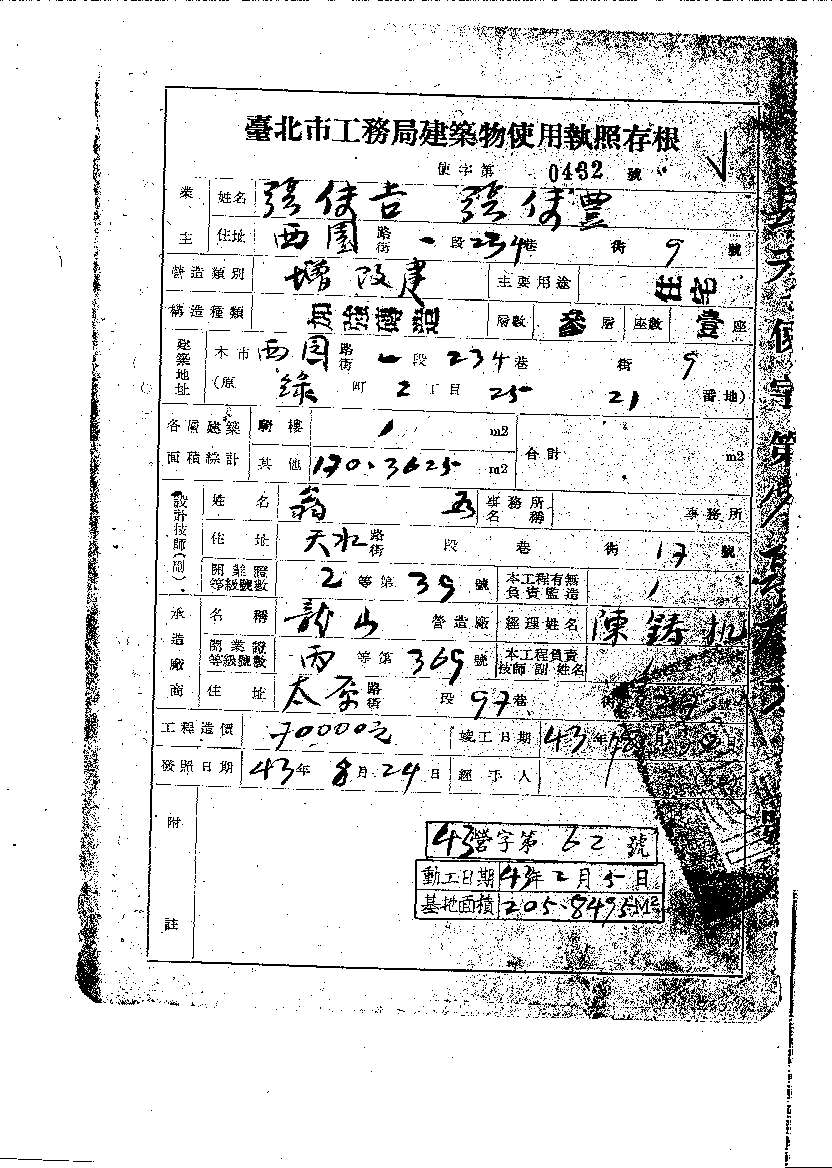 臺北市工務局建築物使用執照存根
使字第 0432 號
業主 姓名 張使吉 張使豐
住址 西園 路街 一 段 234 巷 街 9 號
營造類別 增改建 主要用途 住宅
構造種類 加強磚造 層數 叁 層 座數 壹 座
建築地址 本市 西園 路街 一 段 234 巷 街 9
(原 綠 町 2 丁目 25 21 番地)
各層建築面積綜計 騎樓 / m2 合計 m2
其他 170.3625 m2
設計技師(副) 姓名 翁 事務所名稱 事務所
住址 天水 路街 段 巷 街 17 號
開業證等級號數 2 等第 39 號 本工程有無負責監造 /
承造廠商 名稱 龍山 營造廠 經理姓名 陳鑄
開業證等級號數 丙 等第 369 號 本工程負責技師副姓名
住址 太原 路街 段 97 巷 街 號
工程造價 70000元 竣工日期 43年
發照日期 43年 8月24日 經手人
附註
43營字第 62 號
動工日期 43年2月5日
基地面積 205.8495M2